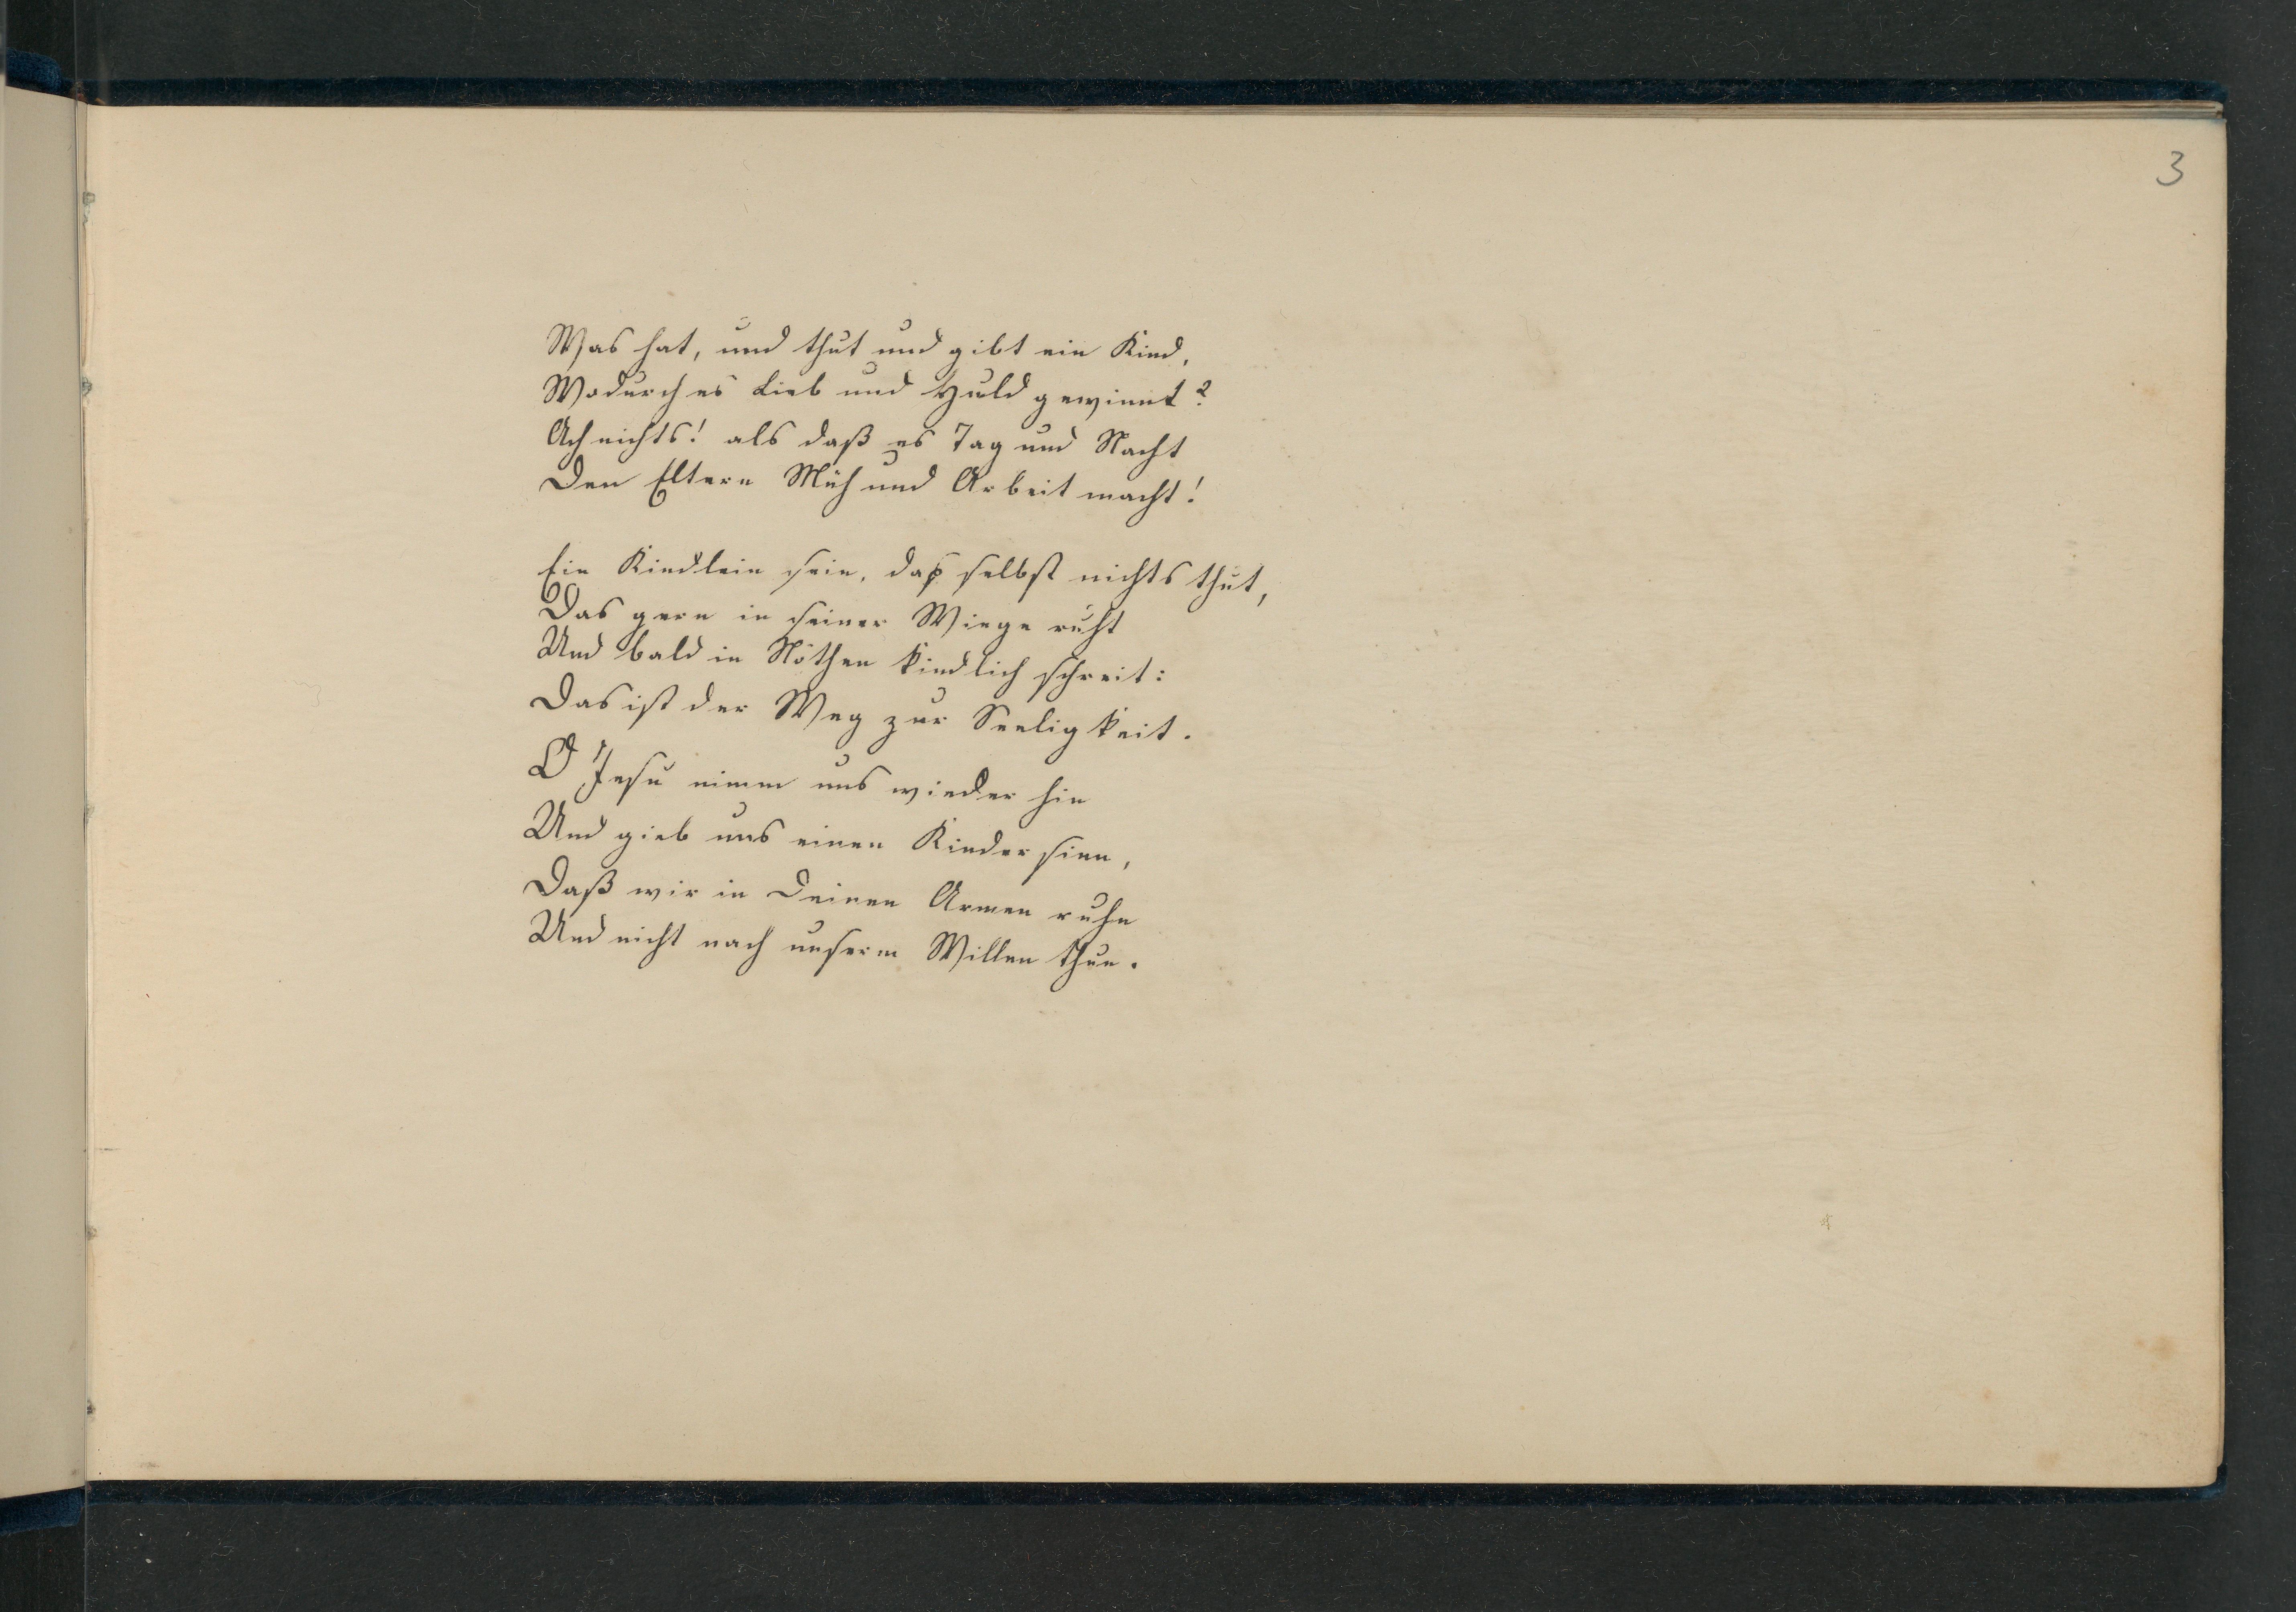 3
Was hat, und thut und gibt ein Kind,
Wodurch es Lieb und Huld gewinnt?
Ach nichts! als daß es Tag und Nacht
Den Eltern Müh und Arbeit macht!
Ein Kindlein sein, daß selbst nichts thut,
Das gern in seiner Wiege ruht
Und bald in Nöthen kindlich schreit:
Das ist der Weg zur Seeligkeit.
O Jesu nimm uns wieder hin
Und gieb uns einen Kindersinn,
Daß wir in Deinen Armen ruhn
Und nicht nach unserm Willen thun.